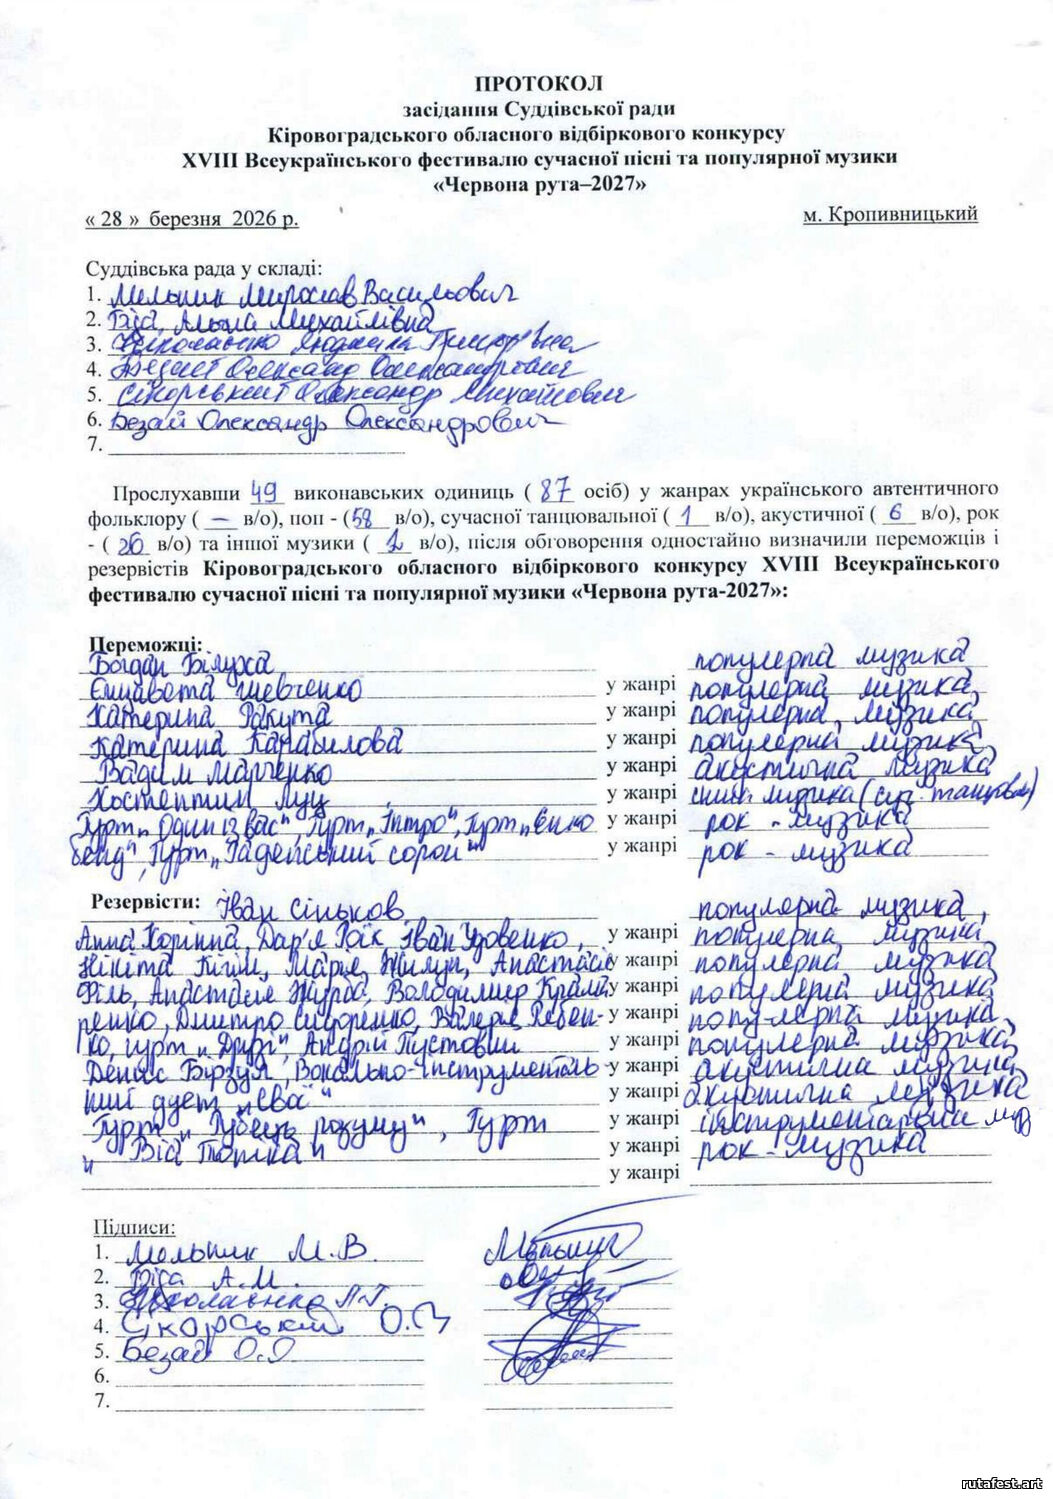 ПРОТОКОЛ
засідання Суддівської ради
Кіровоградського обласного відбіркового конкурсу
XVIII Всеукраїнського фестивалю сучасної пісні та популярної музики
«Червона рута–2027»
« 28 » березня 2026 р. м. Кропивницький
Суддівська рада у складі:
1. Мельник Мирослав Васильович
2. Біда Альла Михайлівна
3. Людмила
4. Олександр Олександрович
5. Сікорський Олександр Михайлович
6. Безай Олександр Олександрович
7.
Прослухавши 49 виконавських одиниць ( 87 осіб) у жанрах українського автентичного
фольклору ( – в/о), поп - (58 в/о), сучасної танцювальної ( 1 в/о), акустичної ( 6 в/о), рок
- ( 26 в/о) та іншої музики ( в/о), після обговорення одностайно визначили переможців і
резервістів Кіровоградського обласного відбіркового конкурсу XVIII Всеукраїнського
фестивалю сучасної пісні та популярної музики «Червона рута-2027»:
Переможці:
Богдан Білуха популерна музика
Єлизавета Шевченко у жанрі популерна музика
Катерина Ракута у жанрі популерна музика
Катерина Канабілова у жанрі популерна музика
Вадим Марченко у жанрі акустична музика
Костентин Луц у жанрі музика (суч. танцюв)
Гурт „Один із вас“, Гурт „Інтро“, Гурт „Єнко у жанрі рок - музика
бенд“, Гурт „Гадейський сорой“ у жанрі рок - музика
Резервісти: Іван Сіньков популерна музика,
Анна Корінна, Дар'я Фоїк, Іван Удовенко, у жанрі популерна музика
Нікіта Марія Анастасія у жанрі популерна музика
Філь, Анастасія Журба, Володимир Крама у жанрі популерна музика
ренко, Дмитро Сидоренко, Валерія Ребен- у жанрі популерна музика
ко, гурт „Друзі“, Андрій Пустовий у жанрі популерна музика
Денис Бірзул, Вокально-інструменталь у жанрі акустична музика
ний дует „Єва“ у жанрі акустична музика
Гурт „Рубець рокуму“, Гурт у жанрі муз
„Від Потіка“ у жанрі рок - музика
у жанрі
Підписи:
1. Мельник М.В
2. Біда А.М.
3. Л.Г.
4. Сікорський О.М
5. Безай О.О
6.
7.
rutafest.art